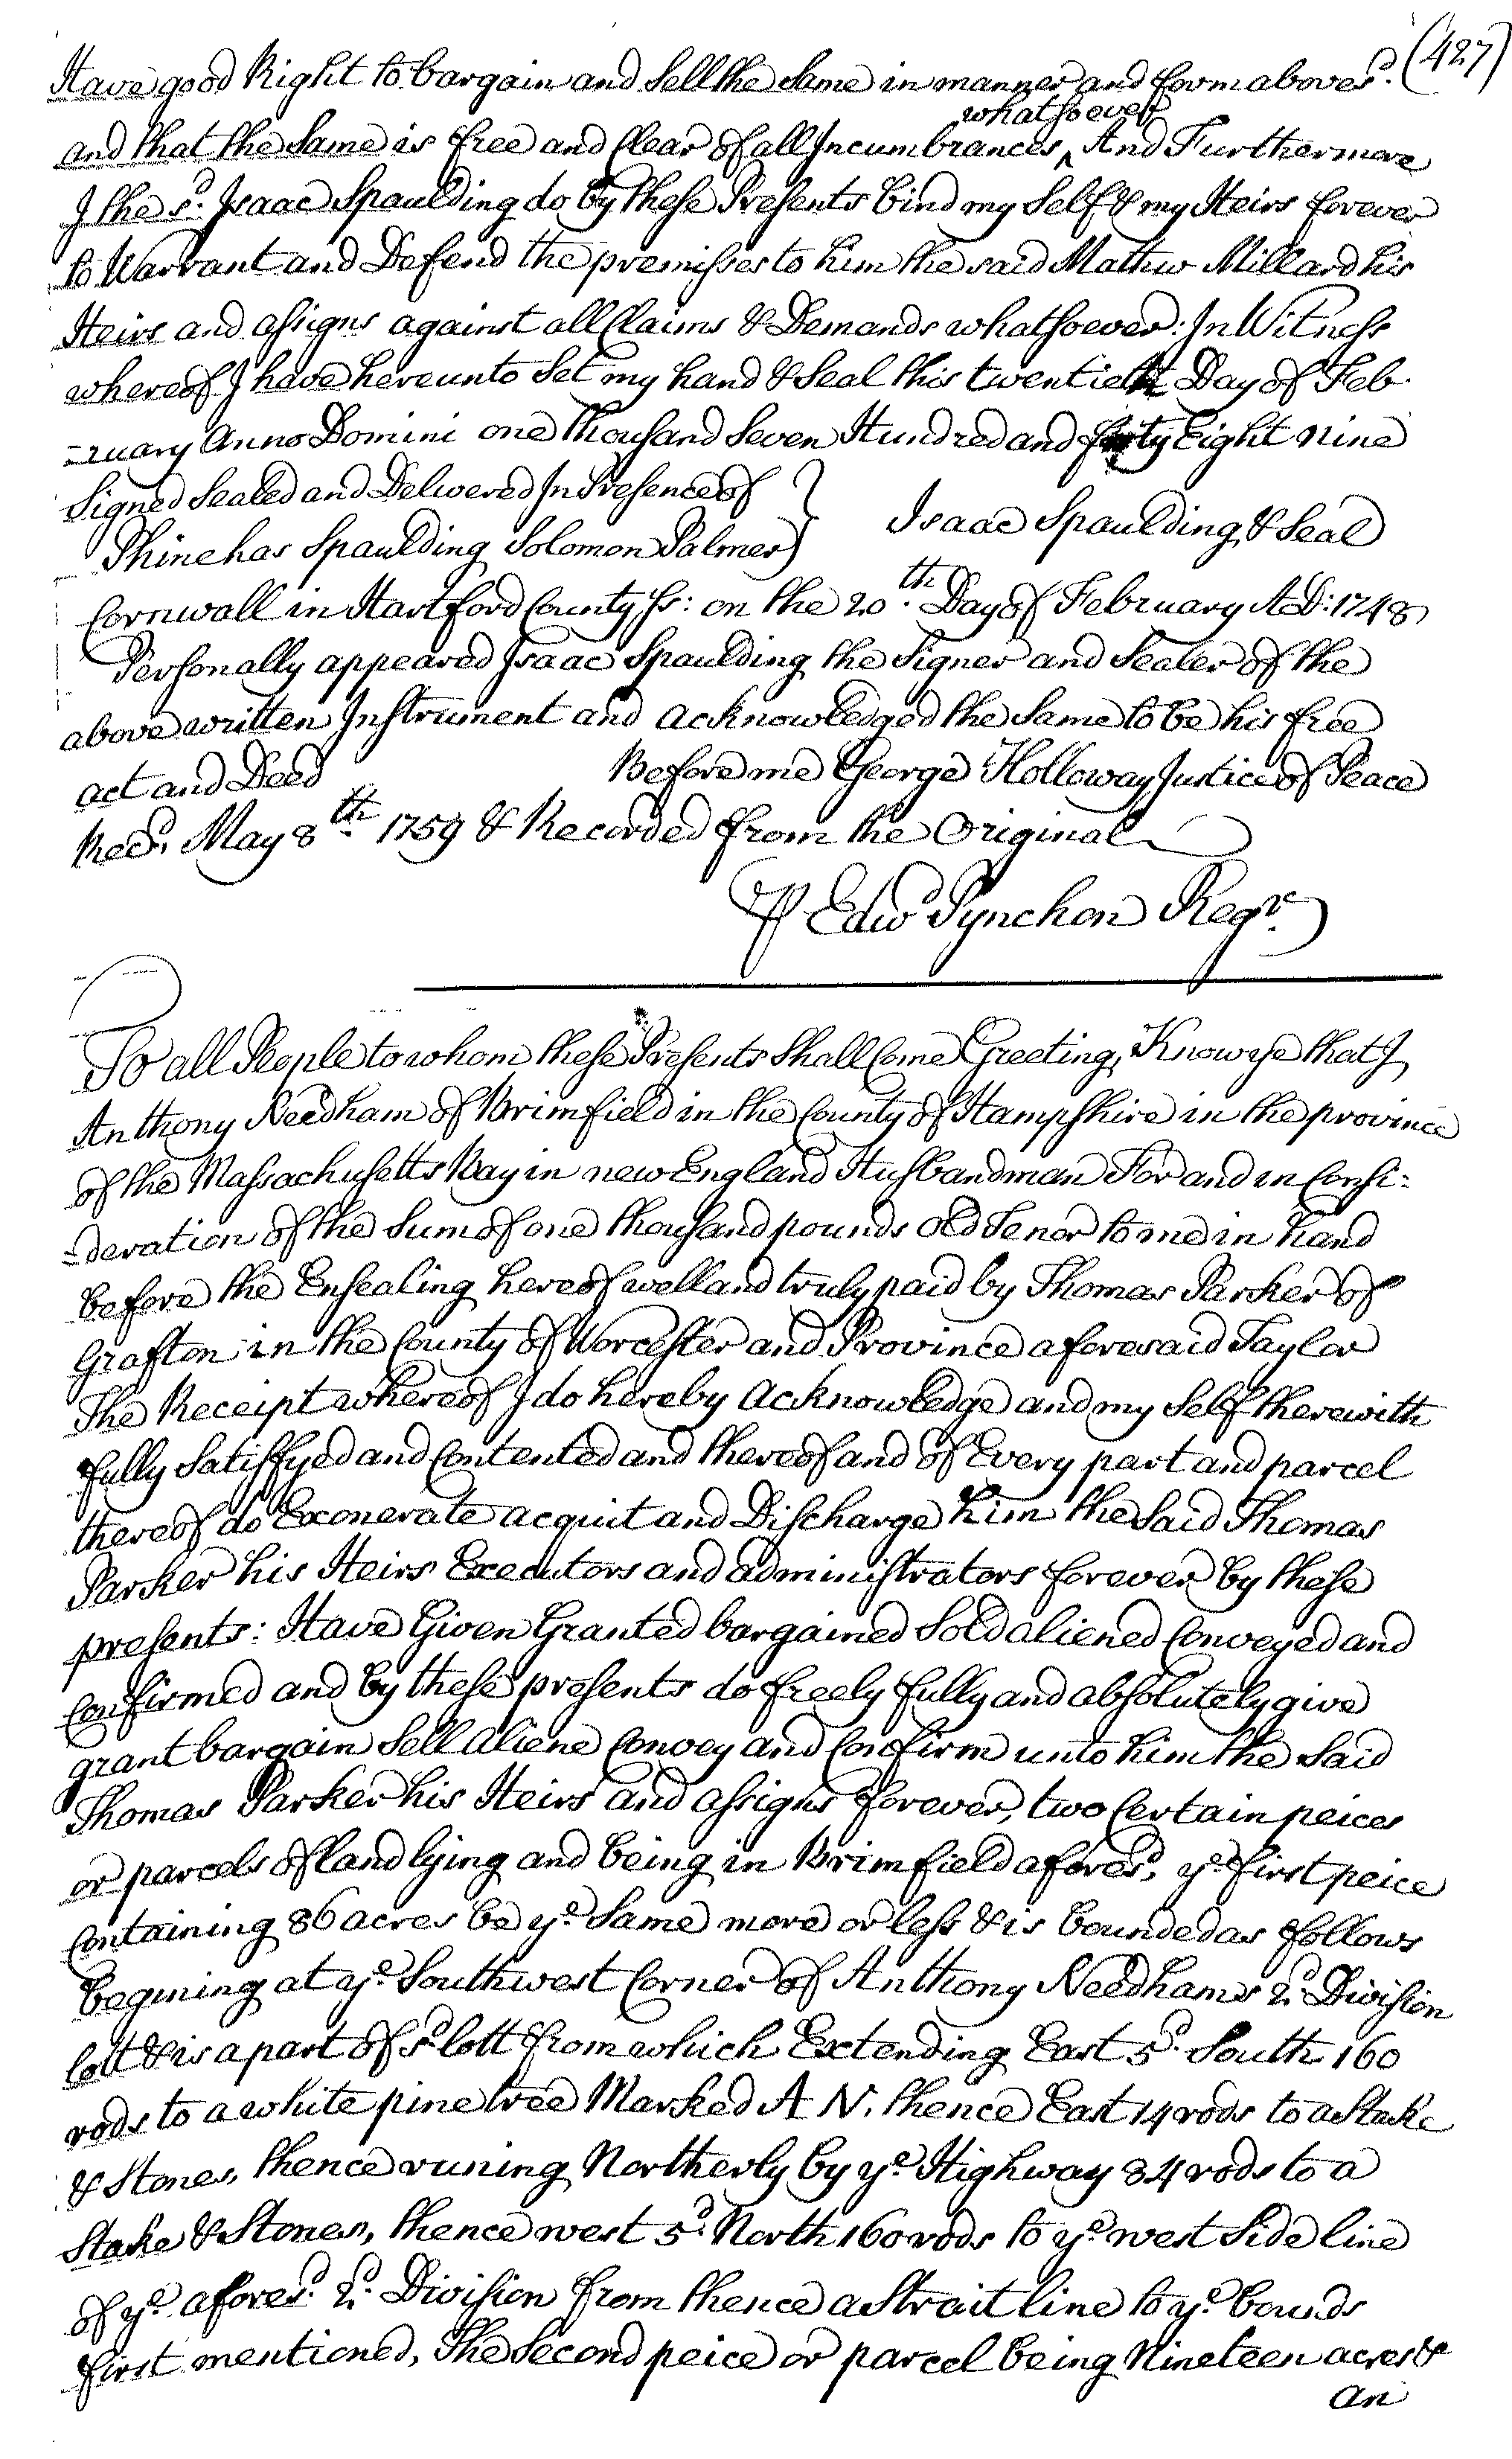 (427)
Have good Right to bargain and Sell the Same in manner and form aboves.d
whatsoever
and that the Same is free and Clear of all Incumbrances ‸ And Furthermore
I the s.d Isaac Spaulding do by these Presents bind my Self & my Heirs forever
to Warrant and Defend the premisses to him the said Mathw Millard his
Heirs and assigns against all Claims & Demands whatsoever: In Witness
whereof I have hereunto Set my hand & Seal this twentieth Day of Feb-
-ruary Anno Domini one thousand Seven Hundred and forty Eight nine
Signed Sealed and Delivered In Presence of }
Isaac Spaulding & Seal
Phinehas Spaulding Solomon Palmer
Cornwall in Hartford County ss: on the 20.th Day of February AD: 1748
Personally appeared Isaac Spaulding the Signer and Sealer of the
above written Instrument and acknowledged the Same to be his free
act and Deed Before me George Holloway Justice of Peace
Rec.d May 8.th 1759 & Recorded from the Original
P Edw.d Pynchon Reg.r
To all People to whom these Presents Shall Come Greeting, Know ye that I
Anthony Needham of Brimfield in the County of Hampshire in the province
of the Massachusetts Bay in new England Husbandman For and in Consi:
-deration of the Sum of one thousand pounds Old Tenor to me in hand
before the Ensealing hereof well and truly paid by Thomas Parker of
Grafton in the County of Worcester and Province aforesaid Taylor
The Receipt whereof I do hereby acknowledge and my Self therewith
fully Satisfyed and Contented and thereof and of Every part and parcel
thereof do Exonerate acquit and Discharge him the Said Thomas
Parker his Heirs Executors and administrators forever by these
presents: Have Given Granted bargained Sold aliened Conveyed and
Confirmed and by these presents do freely fully and absolutely give
grant bargain Sell aliene Convey and Confirm unto him the Said
Thomas Parker his Heirs and assigns forever, two Certain peices
or parcels of land lying and being in Brimfield afores.d, y.e first peice
Containing 86 acres be y.e Same more or less & is bounded as follows
begining at y.e Southwest Corner of Anthony Needhams 2.d Division
lott & is a part of s.d lott from which Extending East 5.d South 160
rods to a white pine tree Marked A N, thence East 14 rods to a Stake
& Stones, thence runing Northerly by y.e Highway 84 rods to a
Stake & Stones, thence west 5.d North 160 rods to y.e west Side line
of y.e afores.d 2.d Division from thence a Strait line to y.e bounds
first mentioned, The Second peice or parcel being Nineteen acres &
an